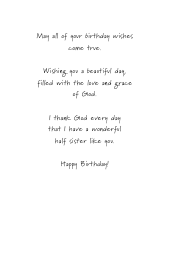 May all of your birthday wishes
come true.
Wishing you a beautiful day,
filled with the love and grace
of God.
I thank God every day
that I have a wonderful
half sister like you.
Happy Birthday!